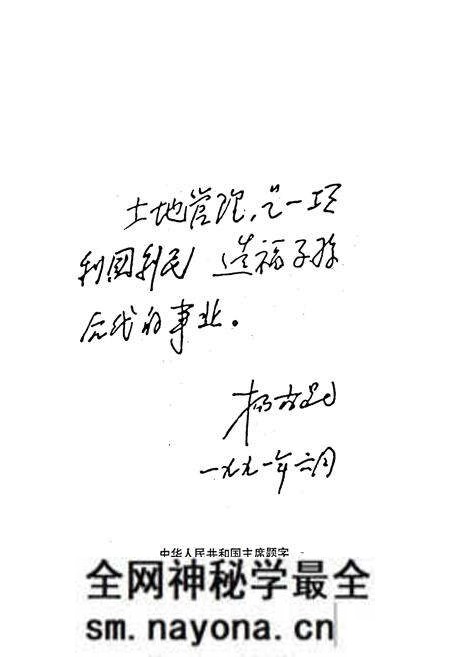 土地管理，是一项
利国利民 造福子孙
后代的事业。
杨尚昆
一九九一年六月
中华人民共和国主席题字
全网神秘学最全
sm.nayona.cn